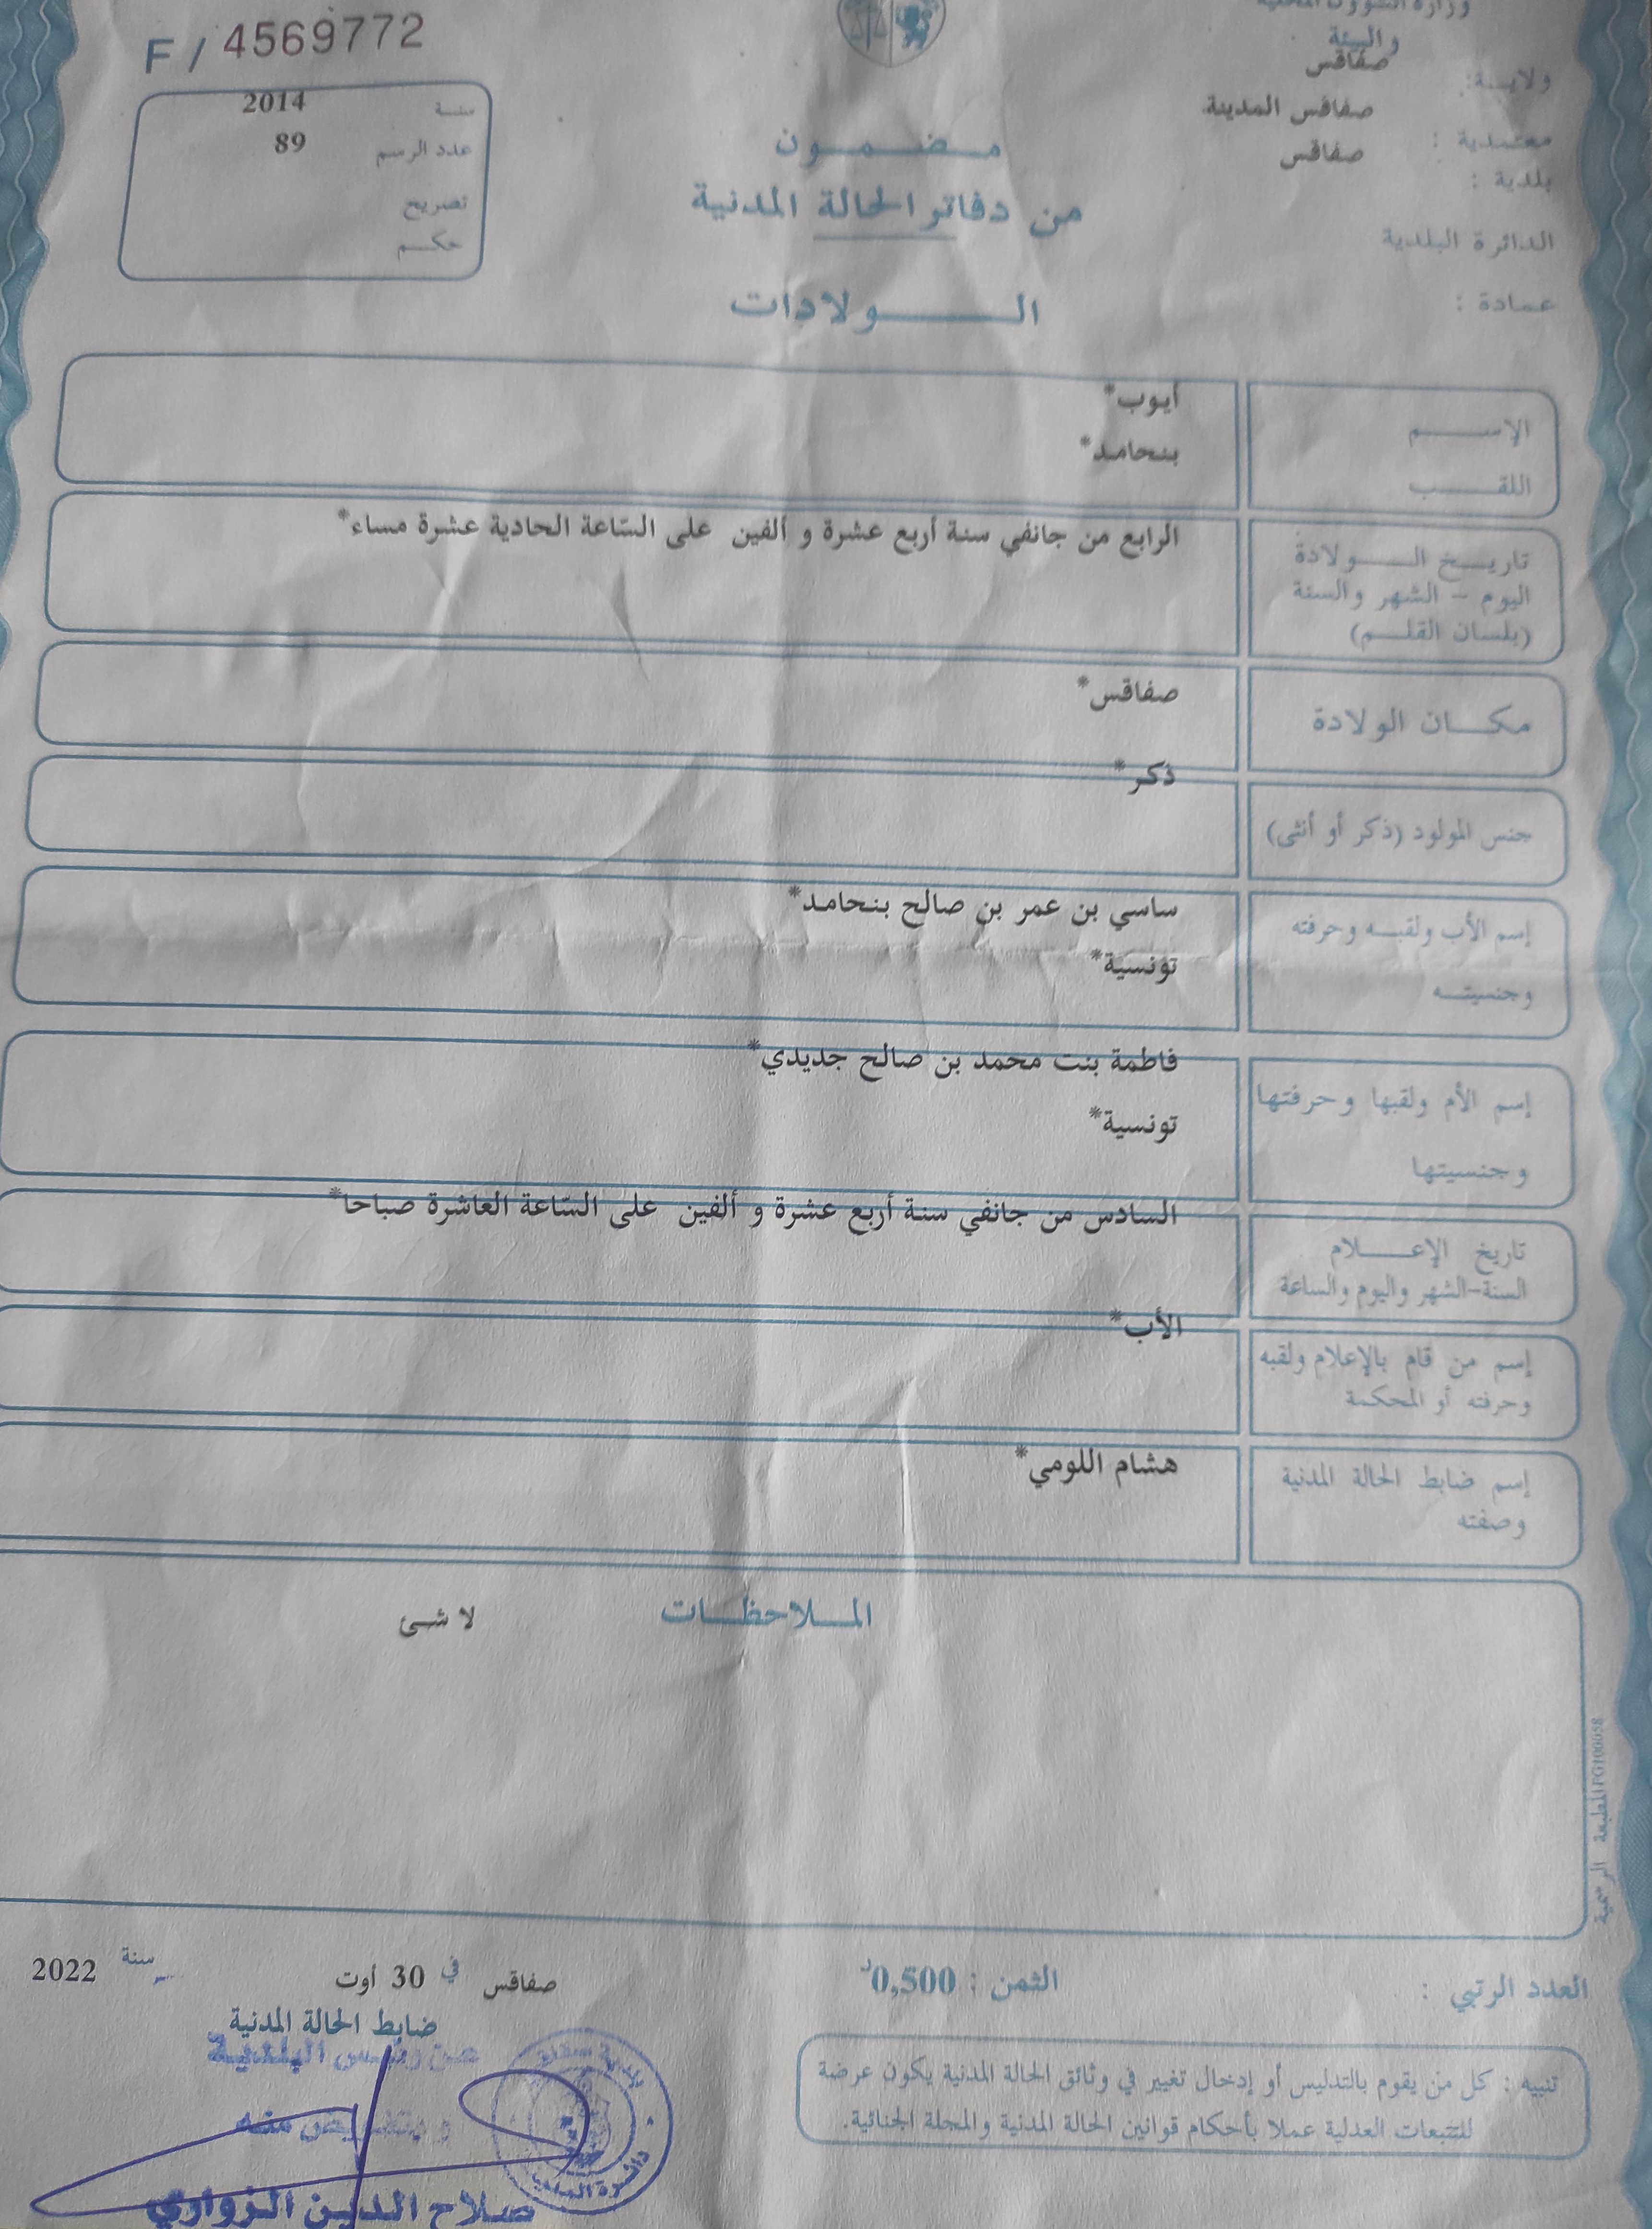 F / 4569772
وزارة الشؤون المحلية
والبيئة
ولايــة: صفاقس
معتمدية : صفاقس المدينة
بلدية : صفاقس
الدائرة البلدية
عمادة :
سنة 2014
عدد الرسم 89
تصريح
حكم
مضمون
من دفاتر الحالة المدنية
الولادات
الإسم أيوب*
اللقب بنحامد*
تاريخ الولادة
اليوم - الشهر والسنة
(بلسان القلم)
الرابع من جانفي سنة أربع عشرة و ألفين على السّاعة الحادية عشرة مساء*
مكان الولادة صفاقس*
جنس المولود (ذكر أو أنثى) ذكر*
إسم الأب ولقبه وحرفته
وجنسيته
ساسي بن عمر بن صالح بنحامد*
تونسية*
إسم الأم ولقبها وحرفتها
وجنسيتها
فاطمة بنت محمد بن صالح جديدي*
تونسية*
تاريخ الإعلام
السنة-الشهر واليوم والساعة
السادس من جانفي سنة أربع عشرة و ألفين على السّاعة العاشرة صباحا*
إسم من قام بالإعلام ولقبه
وحرفته أو المحكمة
الأب*
إسم ضابط الحالة المدنية
وصفته
هشام اللومي*
الملاحظات
لا شئ
المطبعة الرسمية
العدد الرتبي :
الثمن : 0,500د
صفاقس في 30 أوت سنة 2022
ضابط الحالة المدنية
عن رئيس البلدية
وبتفويض منه
صلاح الدين الزواري
تنبيه : كل من يقوم بالتدليس أو إدخال تغيير في وثائق الحالة المدنية يكون عرضة
للتتبعات العدلية عملا بأحكام قوانين الحالة المدنية والمجلة الجنائية.